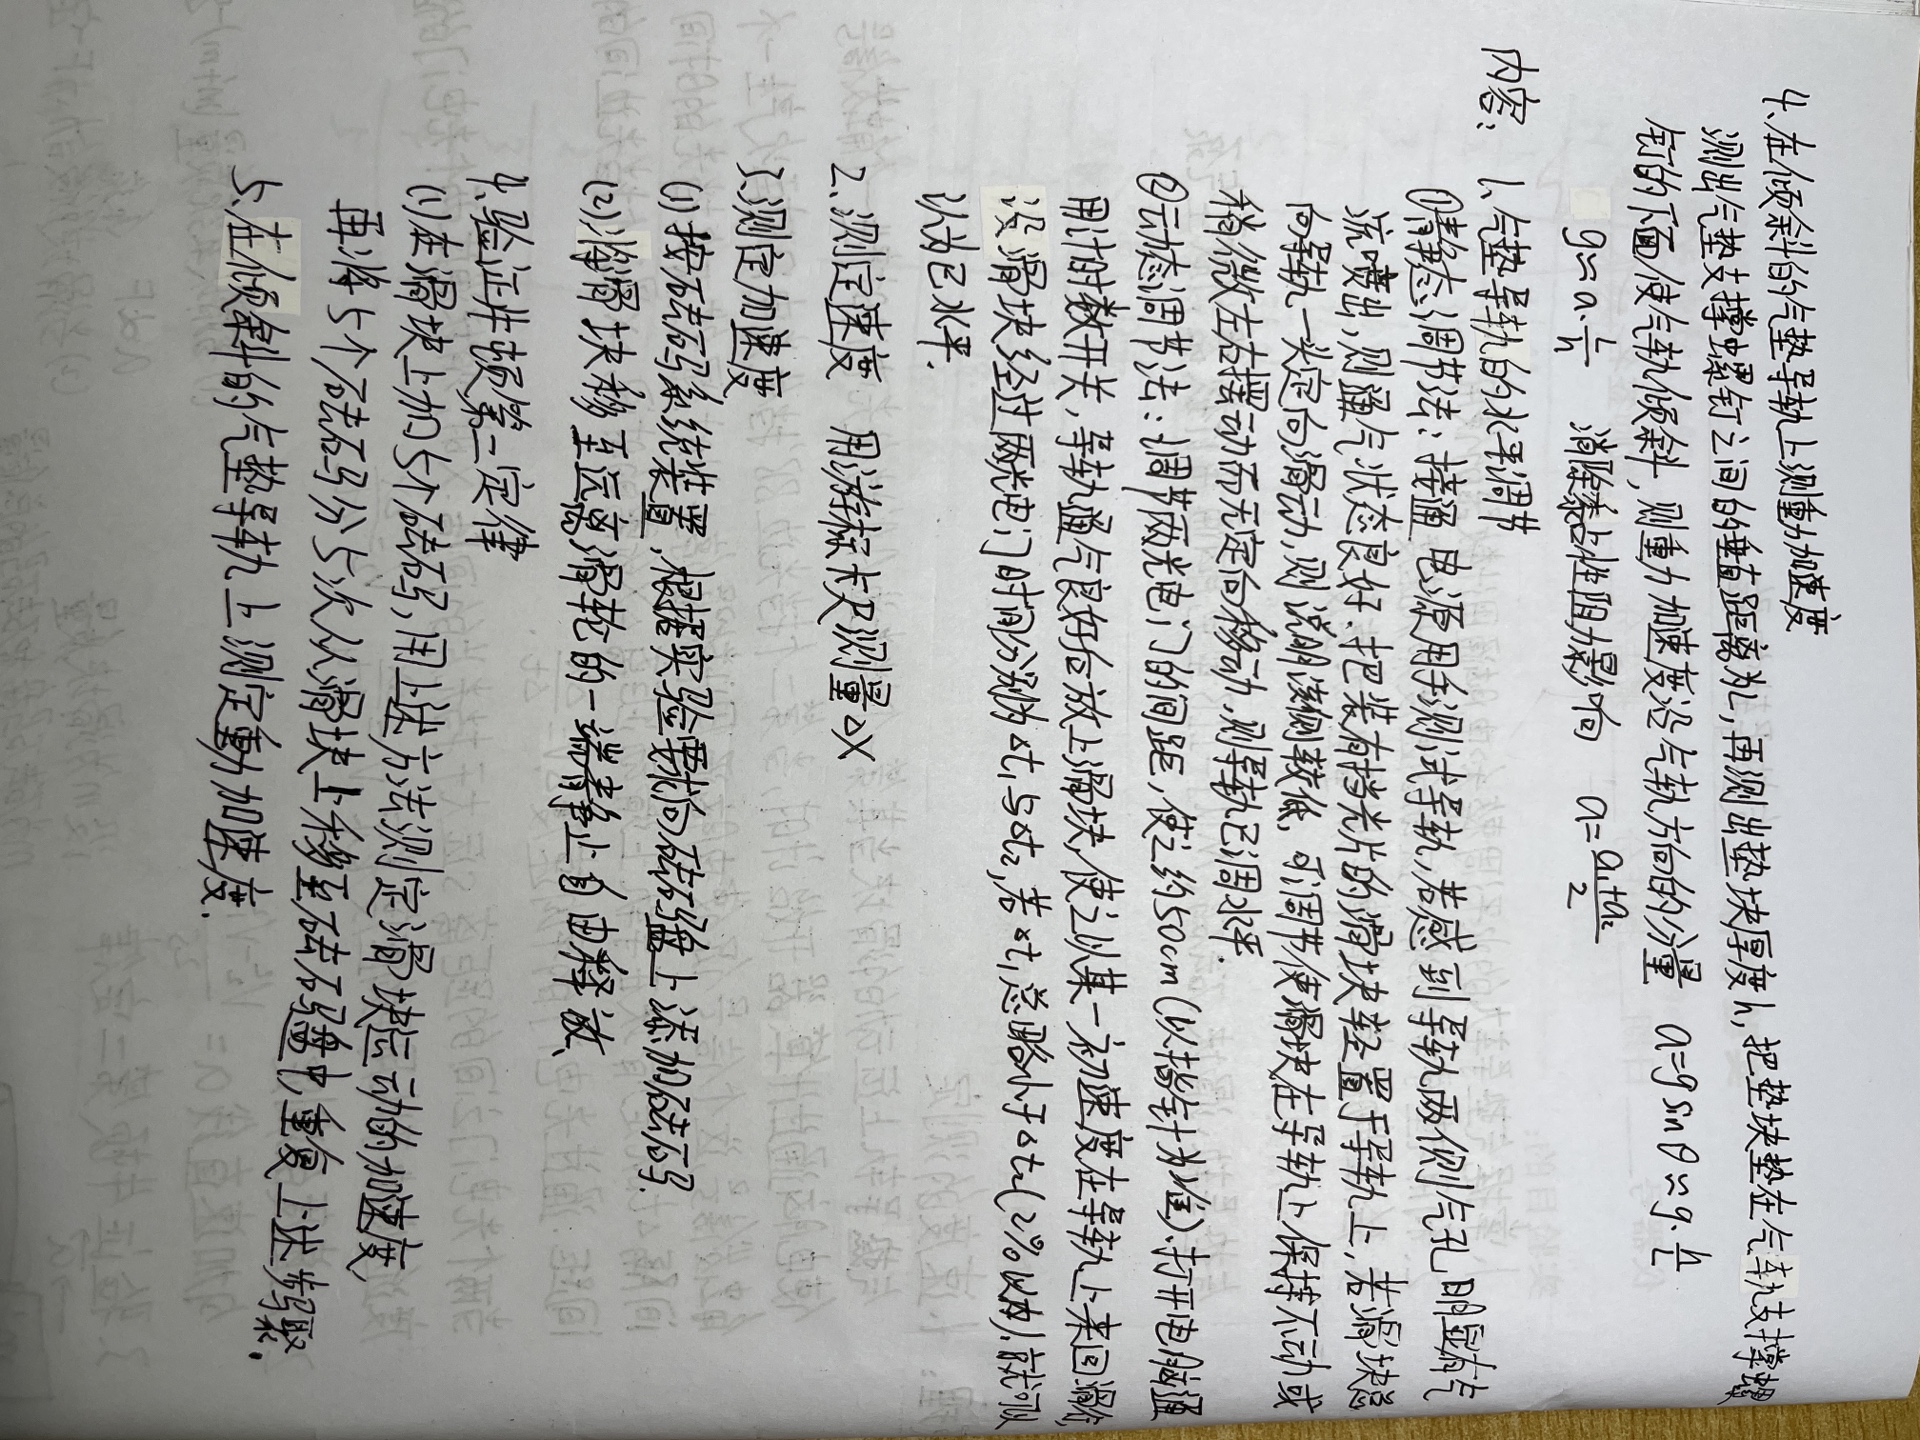 4、在倾斜的气垫导轨上测重力加速度
测出气垫支撑螺钉之间的垂直距离为L,再测出垫块厚度h,把垫块垫在气轨支撑螺
钉的下面使气轨倾斜,则重力加速度沿气轨方向的分量 a=g sinθ≈g·h/L
g≈a·L/h 消除黏性阻力影响 a=(a₁+a₂)/2
内容: 1、气垫导轨的水平调节
①静态调节法:接通电源用手测试导轨,若感到导轨两侧气孔明显有气
流喷出,则通气状态良好.把装有挡光片的滑块轻置于导轨上,若滑块总
向导轨一头定向滑动,则说明该侧较低,可调节使滑块在导轨上保持不动或
稍微左右摆动而无定向移动,则导轨已调水平.
②动态调节法:调节两光电门的间距,使之约50cm(以指针为准)、打开电脑通
用计时数开关,导轨通气良好后放上滑块,使之以某一初速度在导轨上来回滑行,
设滑块经过两光电门时间分别为Δt₁与Δt₂,若Δt₁总略小于Δt₂(2%以内).就可以
认为已水平.
2、测定速度 用游标卡尺测量ΔX
3、测定加速度
(1)按砝码系统装置,根据实验要求向砝码盘上添加砝码.
(2)将滑块移至远离滑轮的一端静止自由释放、
4、验证牛顿第二定律
(1)在滑块上加5个砝码,用上述方法测定滑块运动的加速度,
再将5个砝码分5次从滑块上移至砝码盘中,重复上述步骤.
5、在倾斜的气垫导轨上测定重力加速度.